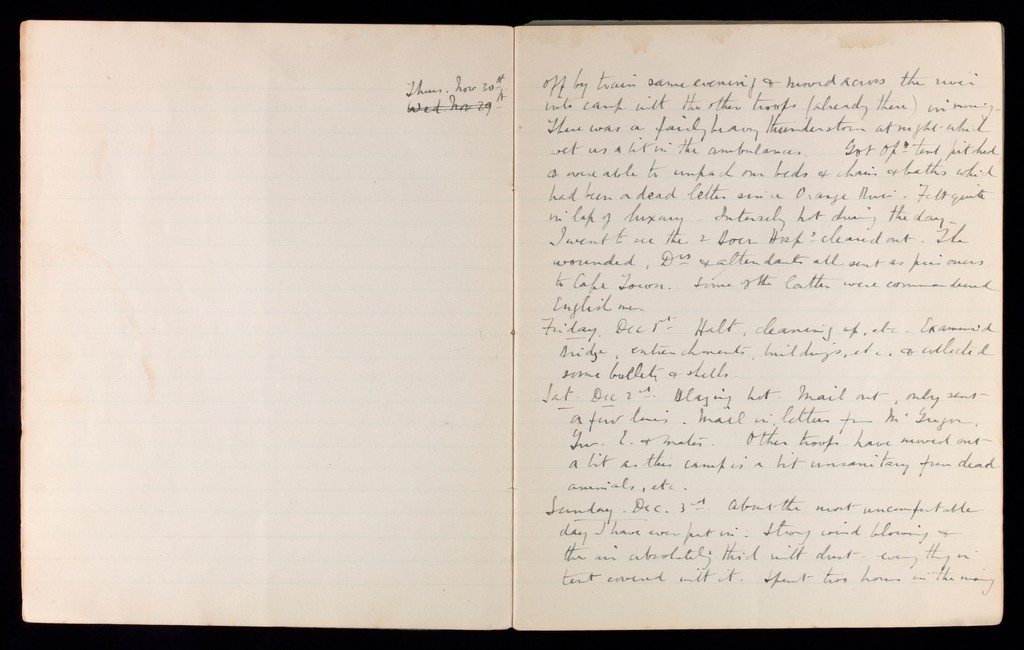 Thurs. Nov 30th
Wed. Nov 29th
off by train same evening & moved across the river
into camp with the other troops (already there) in morning.
There was a fairly heavy thunderstorm at night which
wet us a bit in the ambulances. Got Opg tent pitched
& were able to unpack our beds & chairs & baths which
had been a dead letter since Orange River. Felt quite
in lap of luxury. Intensely hot during the day.
I went to see the 2 Boer Hospls cleared out. The
wounded, Drs & attendants all sent as prisoners
to Cape Town. Some of the latter were commandeered
English men
Friday. Dec 1st Halt, cleaning up, etc. Examined
Bridge, entrenchments, buildings, etc. & collected
some bullets & shells.
Sat. Dec 2nd Blazing hot. Mail out, only sent
a few lines. Mail in, letters from McGregor,
E. & mater. Other troops have moved out
a bit as this camp is a bit unsanitary from dead
animals, etc.
Sunday. Dec. 3rd. About the most uncomfortable
day I have ever put in. Strong wind blowing &
the air absolutely thick with dust - everything in
tent covered with it. Spent two hours in the morning